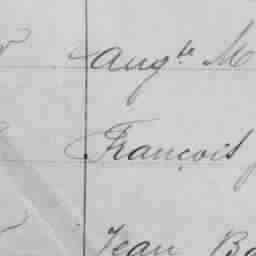 Augte M
François
Jean Ba